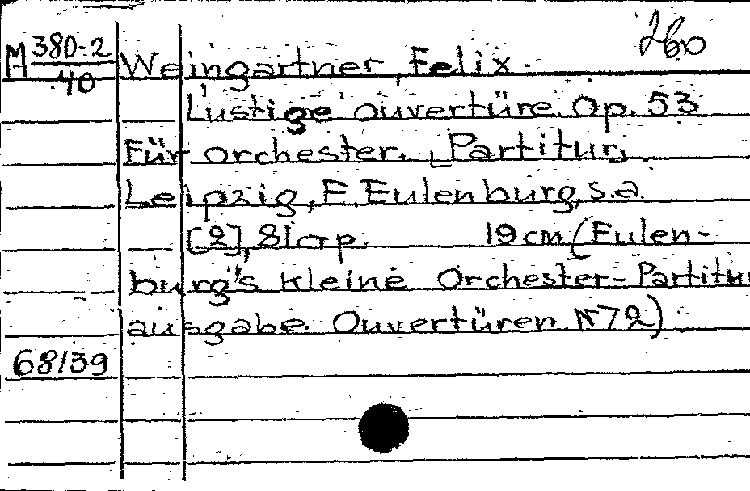 260
M 380-2
40
Weingartner, Felix.
Lustige ouvertüre. Op. 53
Für orchester. [Partitur].
Leipzig, E. Eulenburg, s.a.
[2], 81 c. p. 19 cm (Eulen-
burg's kleine Orchester-Partitur
ausgabe. Ouvertüren N 72).
68/39